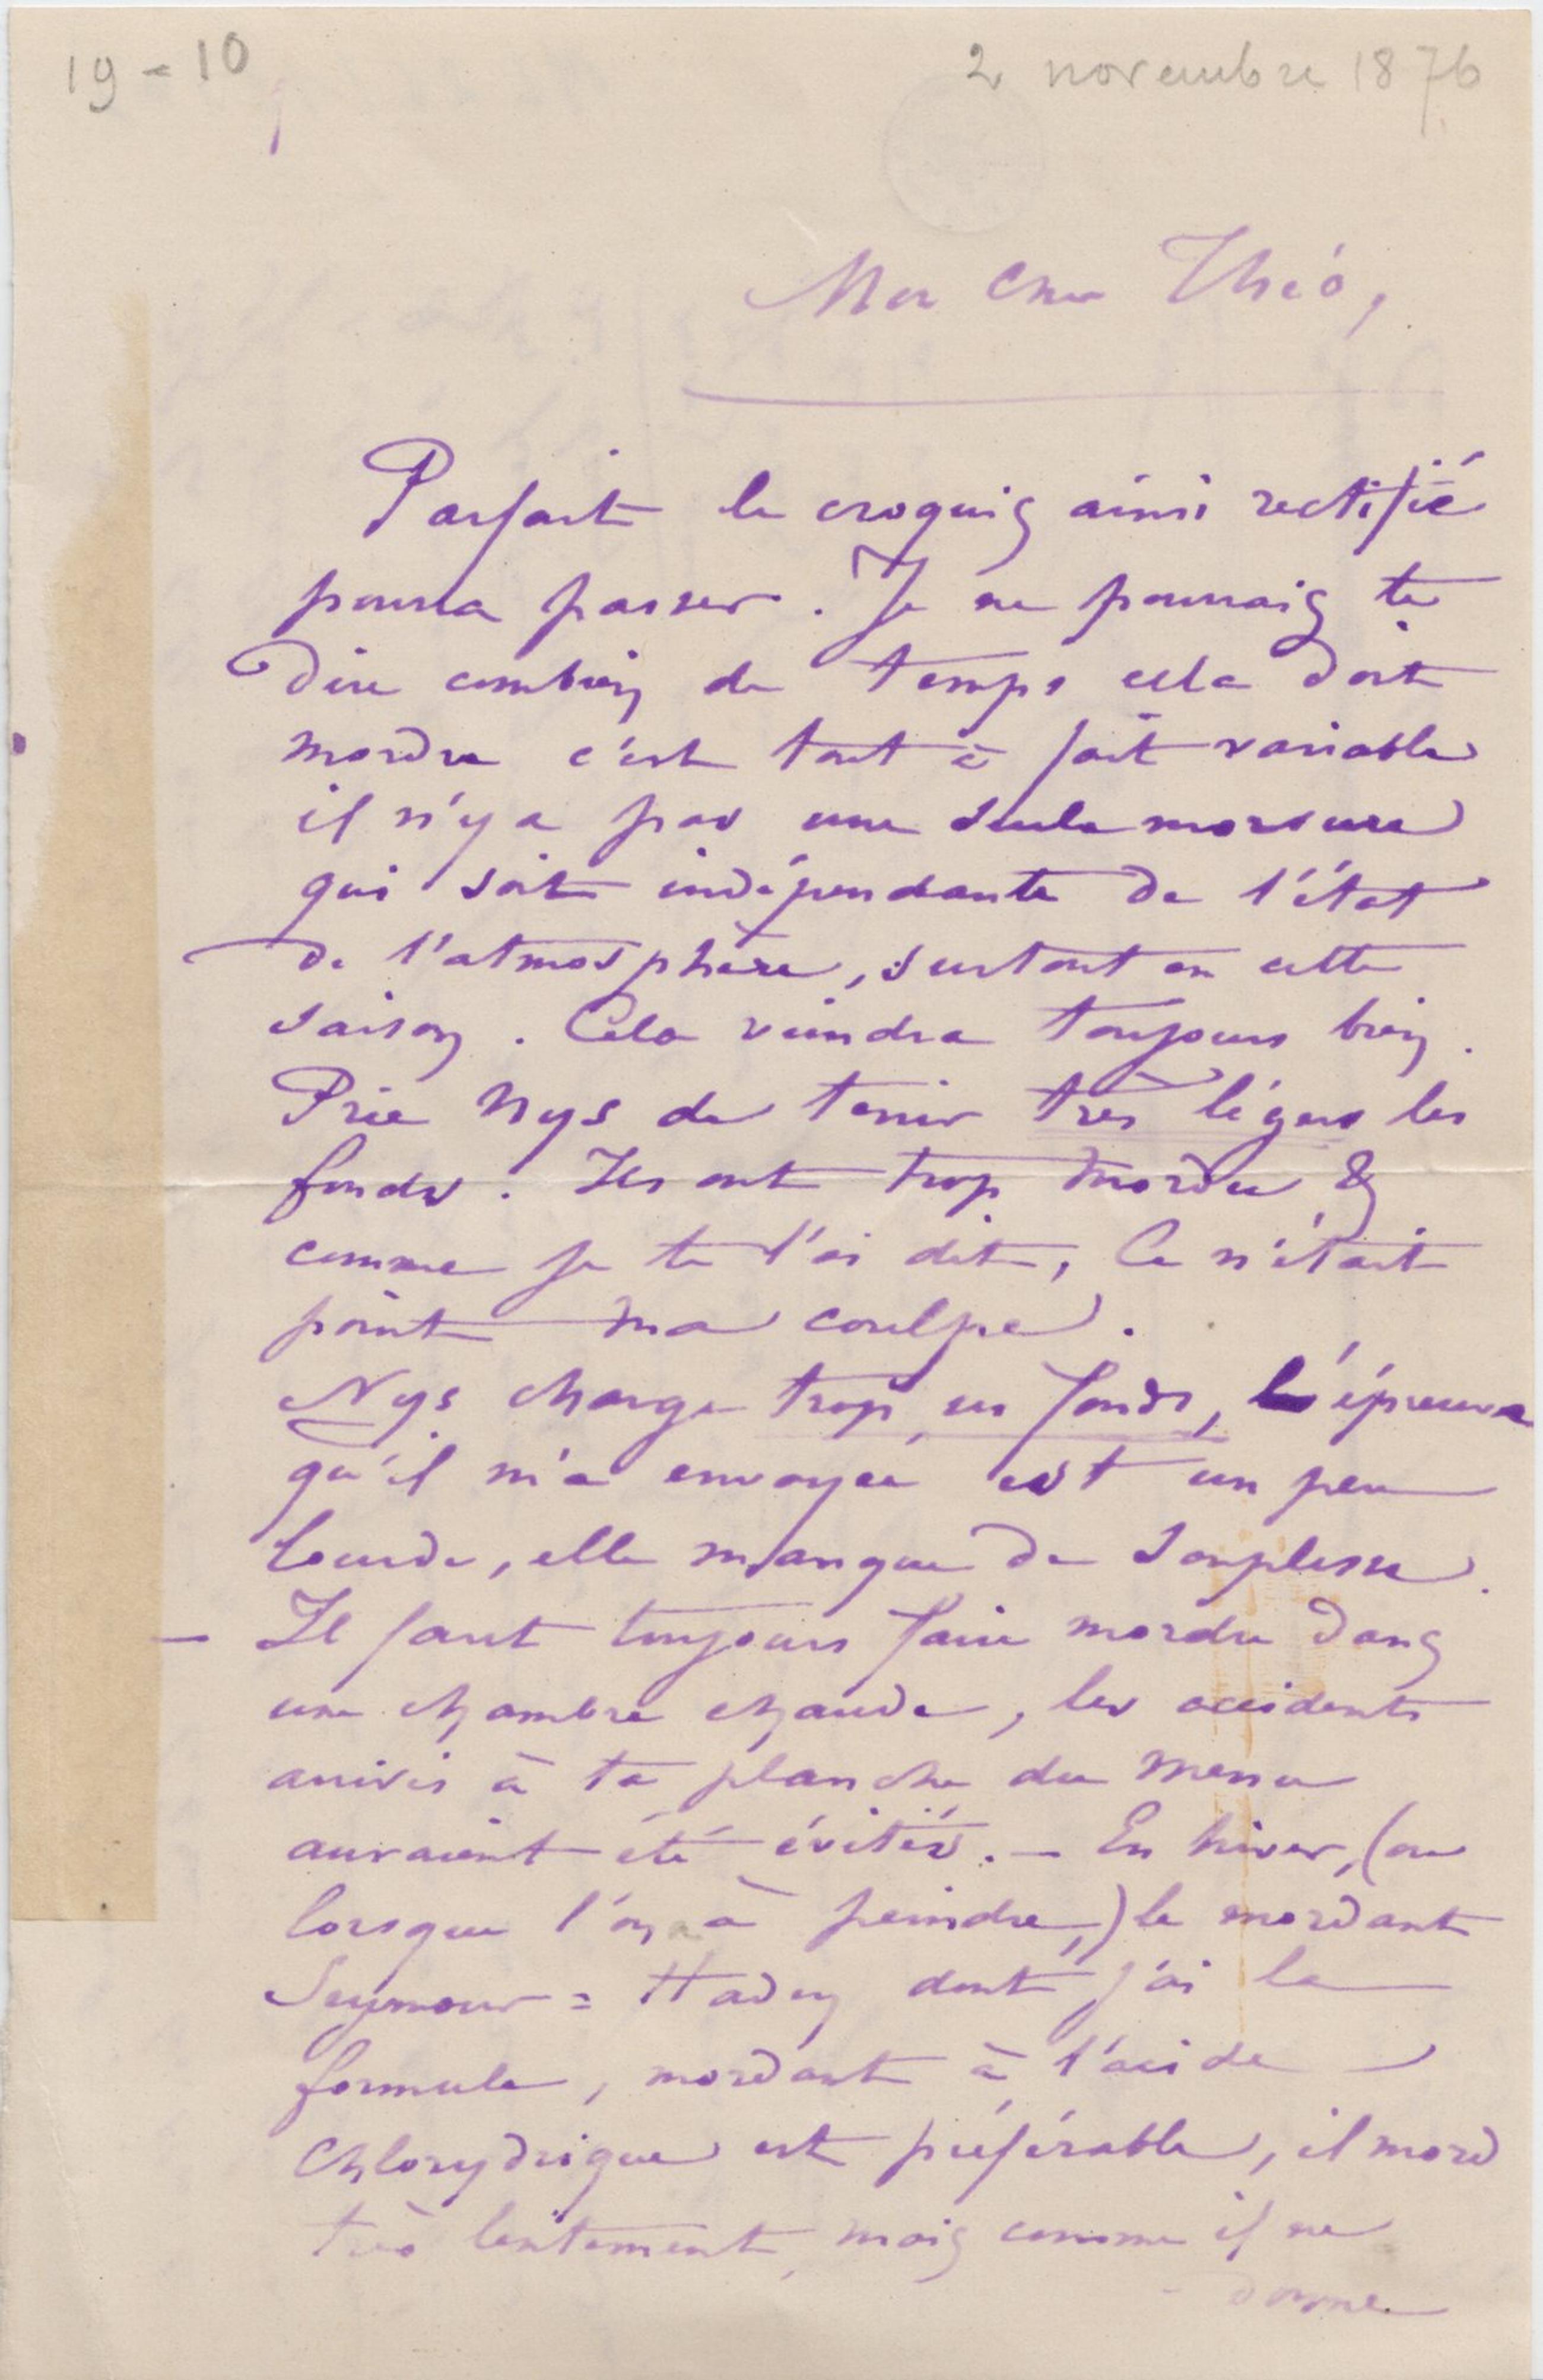 19-10
2 novembre 1876
Mon Cher Théo,
Parfait le croquis ainsi rectifié
pourra passer. Je ne pourrais te
dire combien de temps cela doit
mordre c'est tout à fait variable
il n'y a pas une seule morsure
qui soit indépendante de l'état
de l'atmosphère, surtout en cette
saison. Cela viendra toujours bien.
Prie Nys de tenir très légers les
fonds. Ils ont trop mordu &
comme je te l'ai dit, Ce n'était
point ma coulpe.
Nys charge trop ses fonds, l'épreuve
qu'il m'a envoyée est un peu
lourde, elle manque de souplesse.
— Il faut toujours faire mordre dans
une chambre chaude, les accidents
arrivés à ta planche du menu
auraient été évités. — En hiver, (ou
lorsque l'on a à peindre,) le mordant
Seymour=Haden dont j'ai la
formule, mordant à l'acide
Chlorydrique est préférable, il mord
très lentement, mais comme il ne
donne